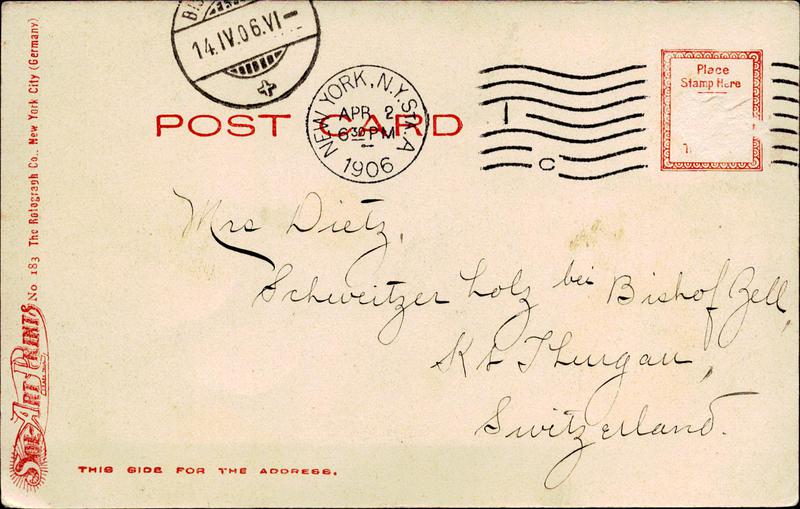 14.IV.06.VI-
NEW YORK, N.Y. STA. A
APR 2
6 30 PM
1906
I
C
Place
Stamp Here
POST CARD
Mrs Dietz,
Schweitzer Holz bei Bishof Zell,
Kt Thurgau,
Switzerland.
THIS SIDE FOR THE ADDRESS.
SOL-ART PRINTS
No 183 The Rotograph Co., New York City (Germany)